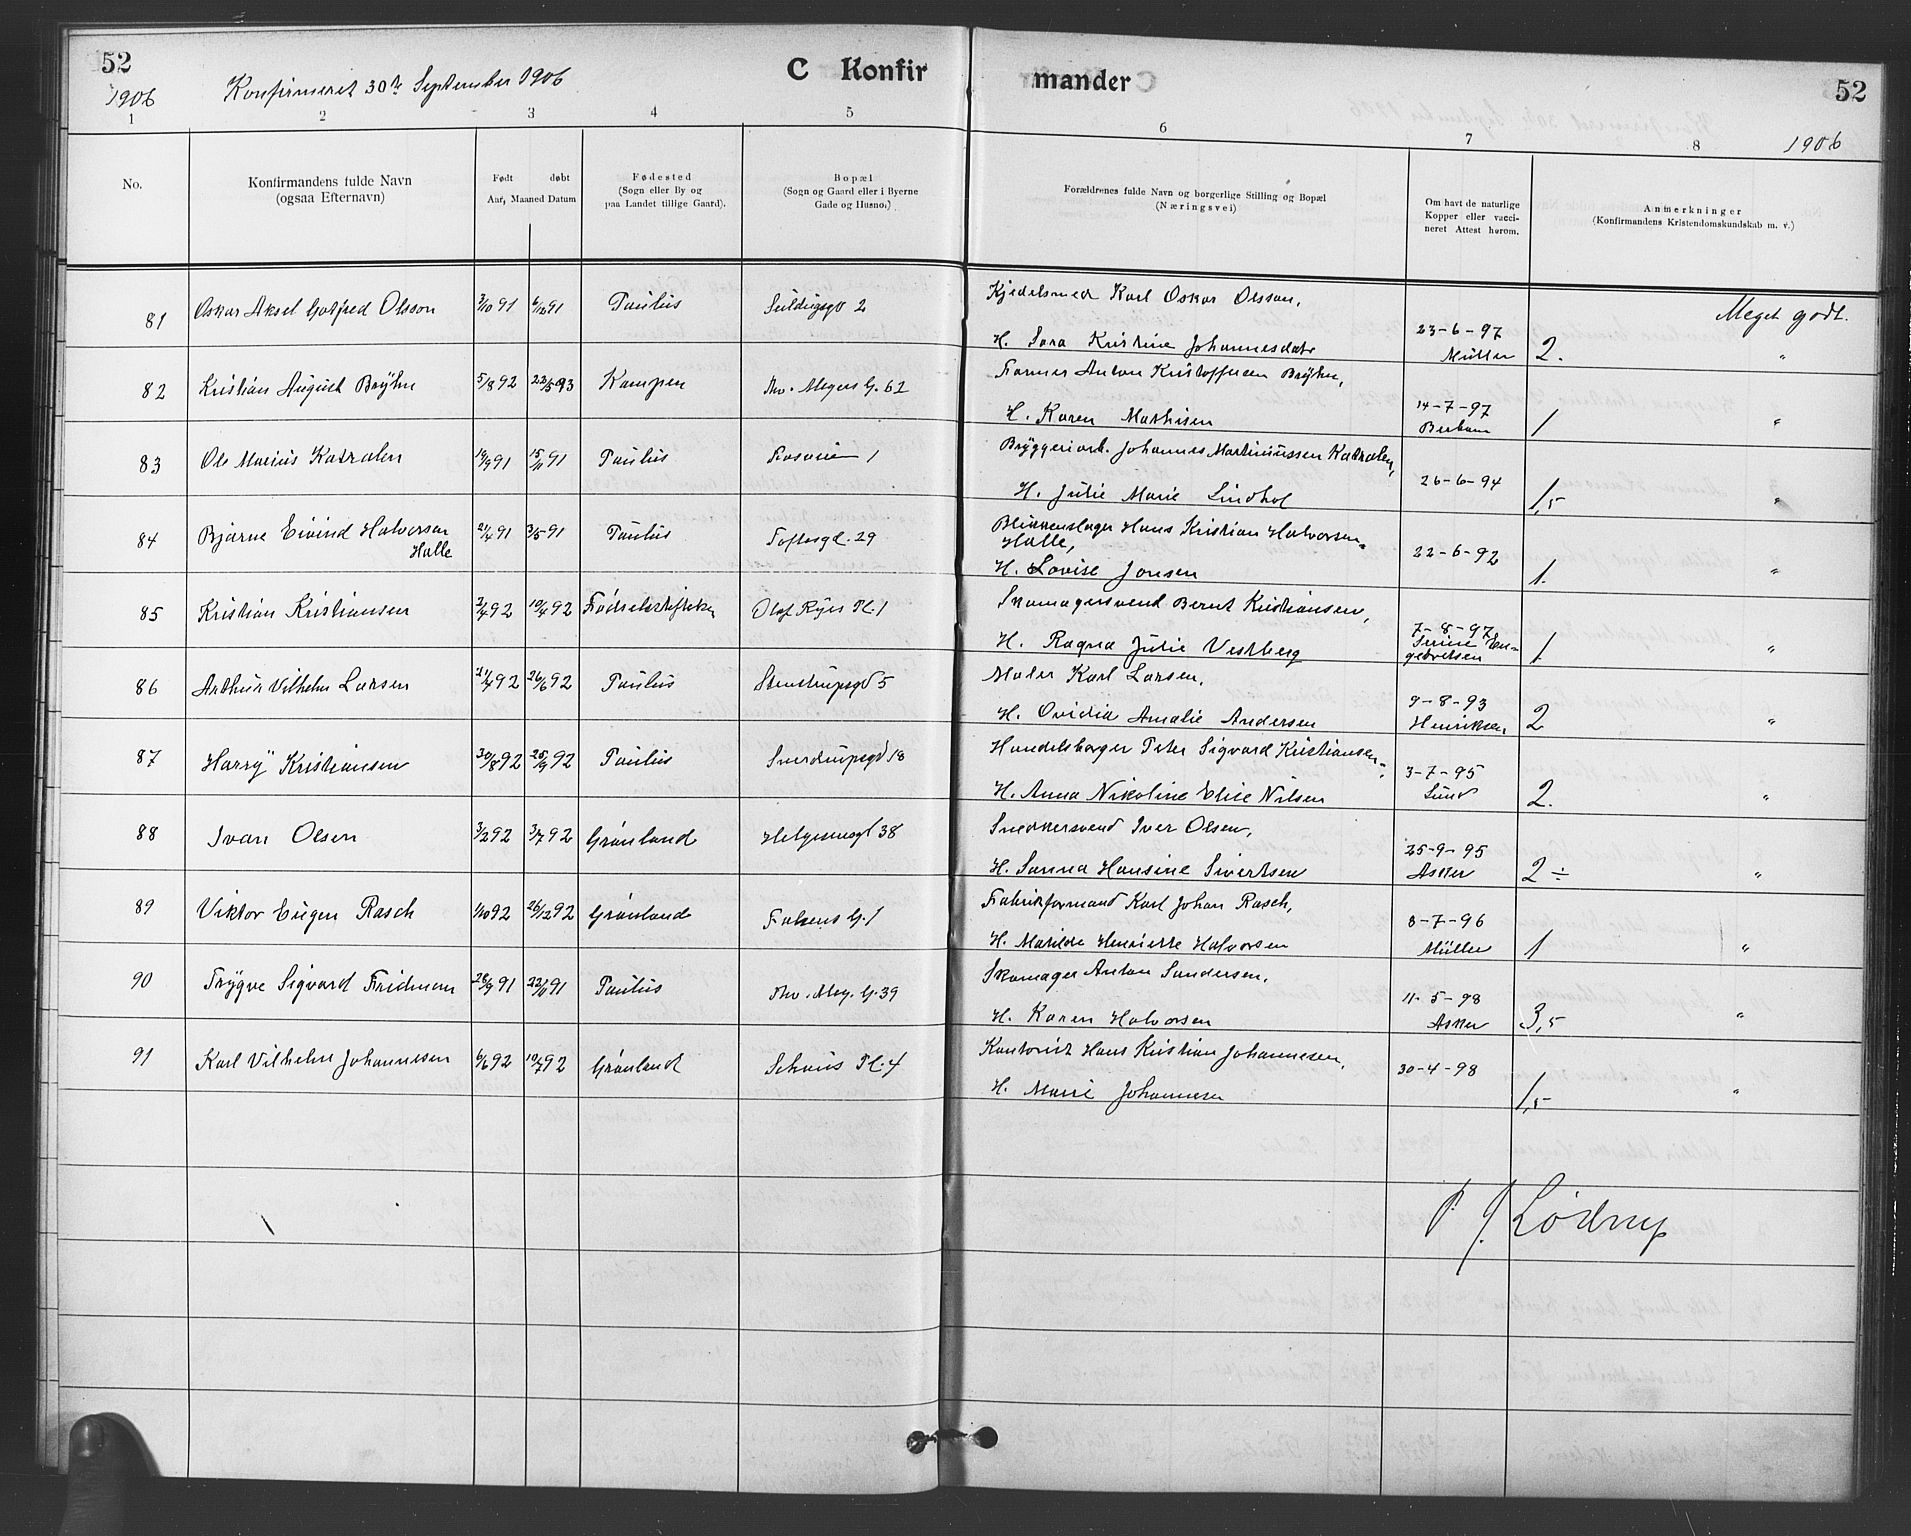 52
C Konfir
mander
52
1906
Konfirmeret 30te September 1906
1906
1 2 3 4 5 6 7 8
No.
Konfirmandens fulde Navn
(ogsaa Efternavn)
Født døbt
Aar, Maaned Datum
Fødested
(Sogn eller By og
paa Landet tillige Gaard).
Bopæl
(Sogn og Gaard eller i Byerne
Gade og Husno.)
Forældrenes fulde Navn og borgerlige Stilling og Bopæl
(Næringsvei)
Om havt de naturlige
Kopper eller vacci-
neret Attest herom.
Anmerkninger
(Konfirmandens Kristendomskundskab m. v.)
81 Oskar Aksel Gotfred Olsson 3/10 91 6/12 91 Paulus 2 Kjedelsmed Karl Oskar Olsson, Meget godt.
H. Sara Kristine Johannesdatr 23-6-97 Müller 2. "
82 Kristian August Brÿhn 5/8 92 22/5 93 Kampen Thv. Meyers G. 62 Former Anton Kristoffersen Brÿhn,
H. Karen Mathisen 14-7-97 1 "
83 Ole Marius Katralen 19/9 91 15/11 91 Paulus 1 Bryggeriarb. Johannes Martinussen Katralen,
H. Julie Marie Lindhol 26-6-94 1,5 "
84 Bjarne Eivind Halvorsen
Halle 21/4 91 3/5 91 Paulus Toftesgd. 29 Blikkenslager Hans Kristian Halvorsen-
Halle,
H. Lovise Jonsen 22-6-92 1. "
85 Kristian Kristiansen 2/4 92 10/4 92 Fødselsstiftelsen Olaf Ryes Pl. 1 Skomagersvend Bernt Kristiansen,
H. Ragna Julie Vestberg 7-8-97 En-
gebretsen 1. "
86 Arthur Vilhelm Larsen 21/4 92 26/6 92 Paulus Stenstrupsgd 5 Maler Karl Larsen,
H. Ovidia Amalie Andersen 9-8-93 Henriksen 2 "
87 Harrÿ Kristiansen 30/8 92 25/9 92 Paulus Sverdrupsgd 18 Handelsborger Peter Sigvard Kristiansen,
H. Anna Nikoline Elise Nilsen 3-7-95 Lund 2. "
88 Ivan Olsen 3/2 92 3/7 92 Grønland Helgesensgd 38 Snedkersvend Iver Olsen,
H. Sanna Hansine Sivertsen 25-9-95 Asker 2 ÷ "
89 Viktor Eugen Rasch 1/10 92 26/12 92 Grønland Falsens G. 1 Fabrikformand Karl Johan Rasch,
H. Matilde Henriette Halvorsen 8-7-96 Müller 1 "
90 Trÿgve Sigvard Fridman 28/9 91 22/11 91 Paulus Thv. Mey. G. 39 Skomager Anton Sandersen,
H. Karen Halvorsen 11-5-98 Asker 3,5 "
91 Karl Vilhelm Johannesen 6/6 92 10/7 92 Grønland Schous Pl. 4 Kontorist Hans Kristian Johannesen,
H. Marie Johannesen 30-4-98 1,5 "
P. J. Lødrup